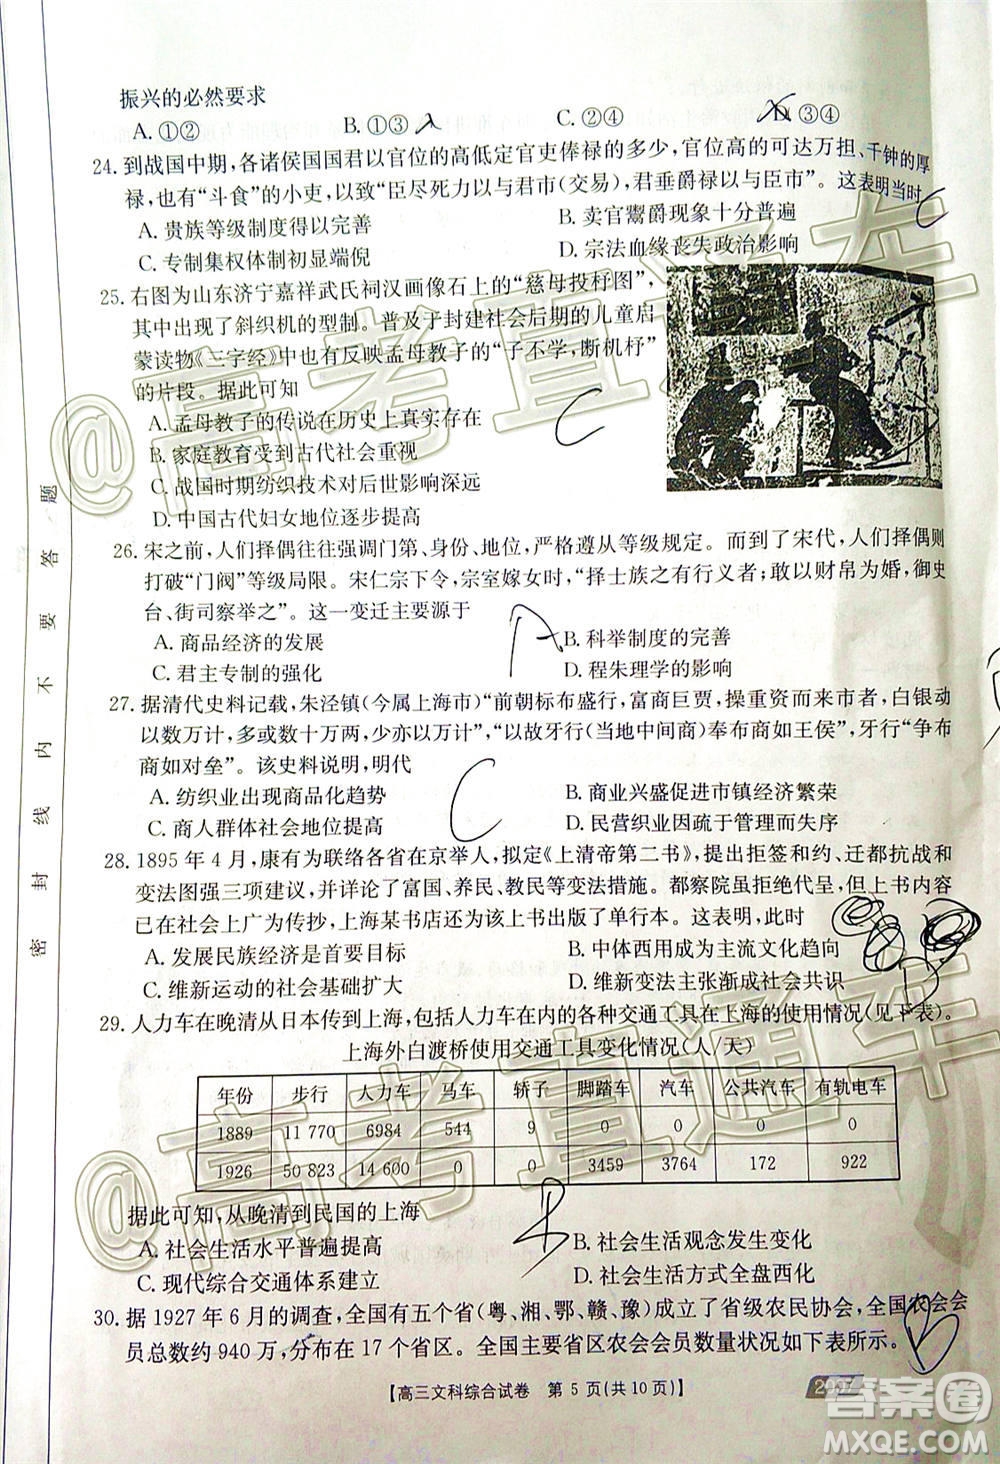 振兴的必然要求
A. ①② B. ①③ C. ②④ D. ③④
24. 到战国中期，各诸侯国国君以官位的高低定官吏俸禄的多少，官位高的可达万担、千钟的厚
禄，也有“斗食”的小吏，以致“臣尽死力以与君市(交易)，君垂爵禄以与臣市”。这表明当时
A. 贵族等级制度得以完善 B. 卖官鬻爵现象十分普遍
C. 专制集权体制初显端倪 D. 宗法血缘丧失政治影响
25. 右图为山东济宁嘉祥武氏祠汉画像石上的“慈母投杼图”，
其中出现了斜织机的型制。普及于封建社会后期的儿童启
蒙读物《三字经》中也有反映孟母教子的“子不学，断机杼”
的片段。据此可知
A. 孟母教子的传说在历史上真实存在
B. 家庭教育受到古代社会重视
C. 战国时期纺织技术对后世影响深远
D. 中国古代妇女地位逐步提高
26. 宋之前，人们择偶往往强调门第、身份、地位，严格遵守等级规定。而到了宋代，人们择偶则
打破“门阀”等级局限。宋仁宗下令，宗室嫁女时，“择士族之有行义者；敢以财帛为婚，御史
台、街司察举之”。这一变迁主要源于
A. 商品经济的发展 B. 科举制度的完善
C. 君主专制的强化 D. 程朱理学的影响
27. 据清代史料记载，朱泾镇(今属上海市)“前朝标布盛行，富商巨贾，操重资而来市者，白银动
以数万计，多或数十万两，少亦以万计”，“以故牙行(当地中间商)奉布商如王侯”，牙行“争布
商如对垒”。该史料说明，明代
A. 纺织业出现商品化趋势 B. 商业兴盛促进市镇经济繁荣
C. 商人群体社会地位提高 D. 民营织业因疏于管理而失序
28. 1895 年 4 月，康有为联络各省在京举人，拟定《上清帝第二书》，提出拒和、迁都抗战和
变法图强三项建议，并详论了富国、养民、教民等变法措施。都察院虽拒绝代呈，但上书内容
已在社会上广为传抄，上海某书店还为该上书出版了单行本。这表明，此时
A. 发展民族经济是首要目标 B. 中体西用成为主流文化趋向
C. 维新运动的社会基础扩大 D. 维新变法主张渐成社会共识
29. 人力车在晚清从日本传到上海，包括人力车在内的各种交通工具在上海的使用情况(见下表)。
上海外白渡桥使用交通工具变化情况(人/天)
年份 步行 人力车 马车 轿子 脚踏车 汽车 公共汽车 有轨电车
1889 11 770 6984 544 9 0 0 0 0
1926 50 823 14 600 0 0 3459 3764 172 922
据此可知，从晚清到民国的上海
A. 社会生活水平普遍提高 B. 社会生活观念发生变化
C. 现代综合交通体系建立 D. 社会生活方式全盘西化
30. 据 1927 年 6 月的调查，全国有五个省(粤、湘、鄂、赣、豫)成立了省级农民协会，全国农会会
员总数约 940 万，分布在 17 个省区。全国主要省区农会会员数量状况如下表所示。
【高三文科综合试卷 第 5 页(共 10 页)】
密 封 线 内 不 要 答 题
@高考直通车
@高考直通车
答案圈
MXQE.COM
C
C
A
C
D
B
B